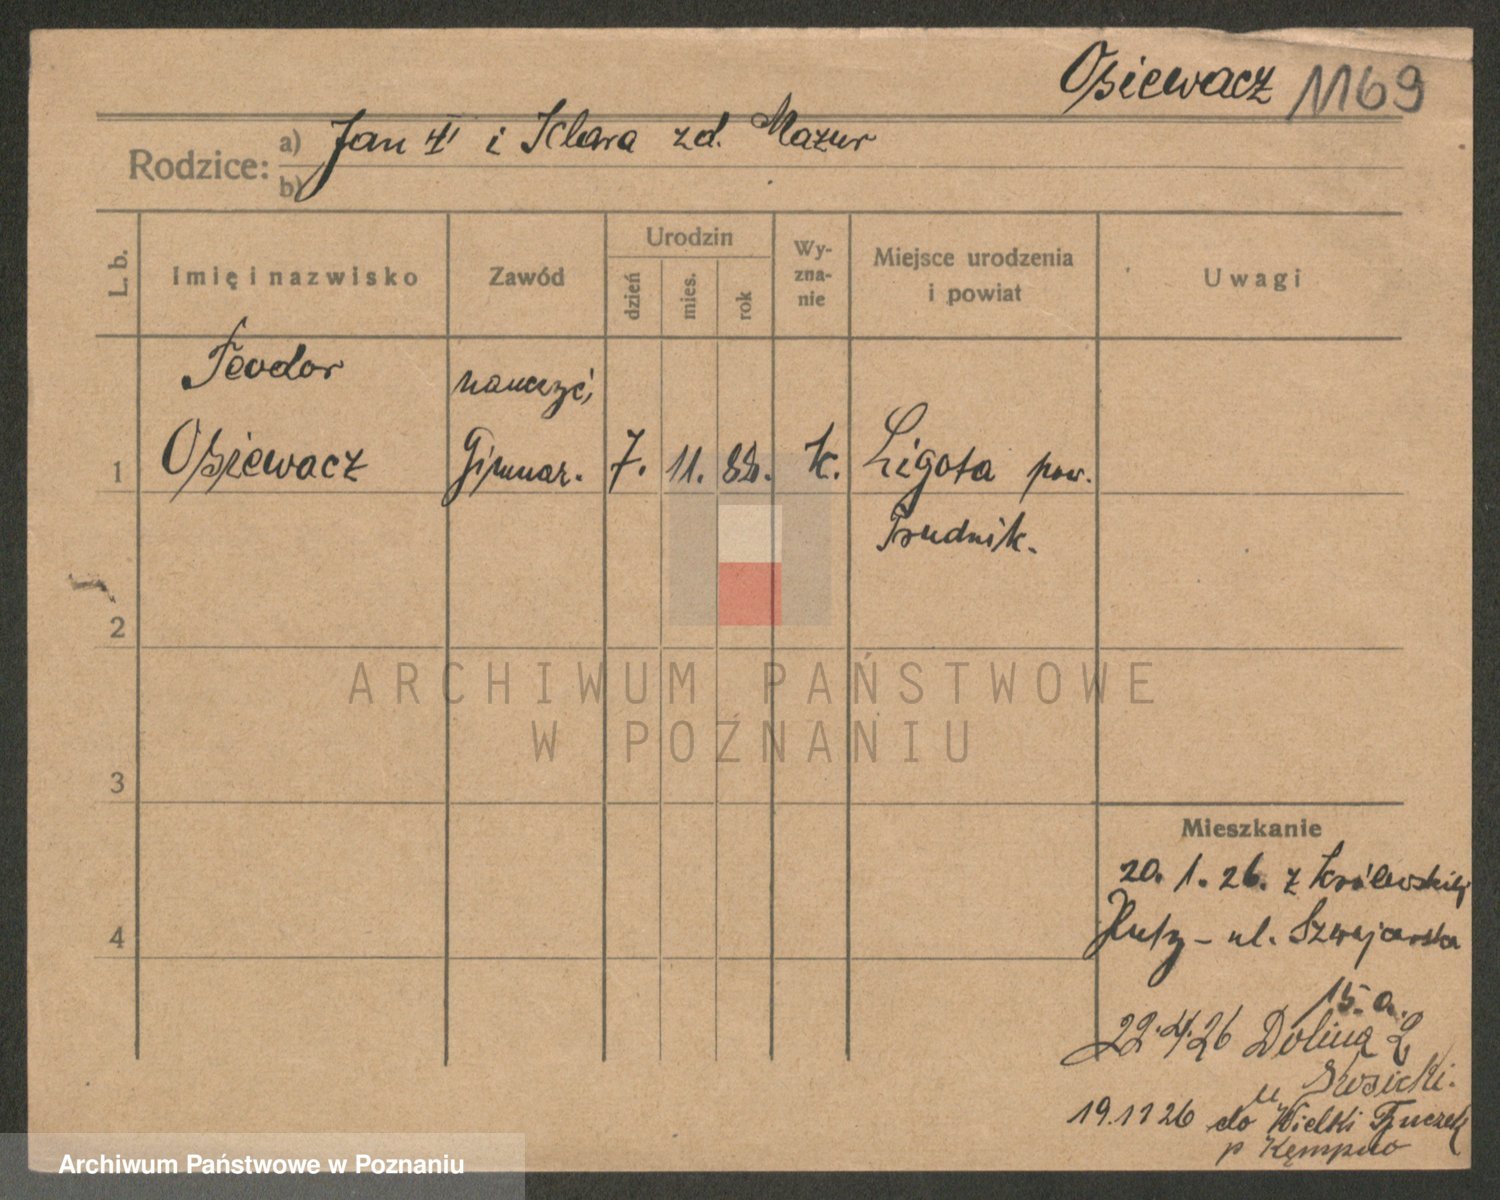 Osiewacz 1169
Rodzice: a) Jan † i Klara zd. Mazur
b)
L. b.
Imię i nazwisko
Zawód
Urodzin
dzień
mies.
rok
Wy-
zna-
nie
Miejsce urodzenia
i powiat
Uwagi
Teodor
nauczyć,
1 Osiewacz Gimnaz. 7. 11. 82. k. Ligota pow.
Prudnik.
2
ARCHIWUM PAŃSTWOWE
W POZNANIU
3
Mieszkanie
20. 1. 26. z Królewskiej
4
Huty - ul. Szwajcarska
15. a.
22.4.26 Dolina 2
u
19.11 26 do Wielki
p Kempno
Archiwum Państwowe w Poznaniu